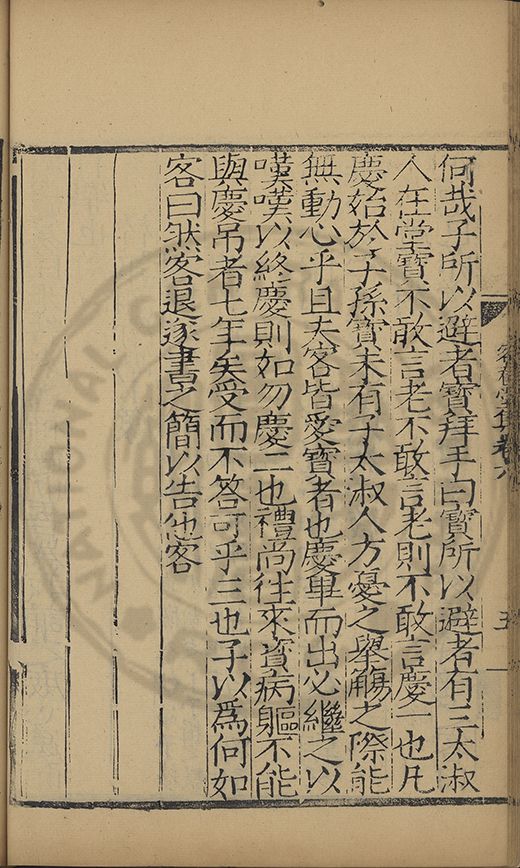 何哉子所以避者寶拜手曰寶所以避者有三太淑
人在堂寶不敢言老不敢言老則不敢言慶一也凡
慶始於子孫寶未有子太淑人方憂之舉觴之際能
無動心乎且夫客皆愛寶者也慶畢而出必繼之以
嘆嘆以終慶則如勿慶二也禮尚往來寶病軀不能
與慶吊者七年矣受而不答可乎三也子以為何如
客曰然客退遂書之簡以告他客
卷六
五